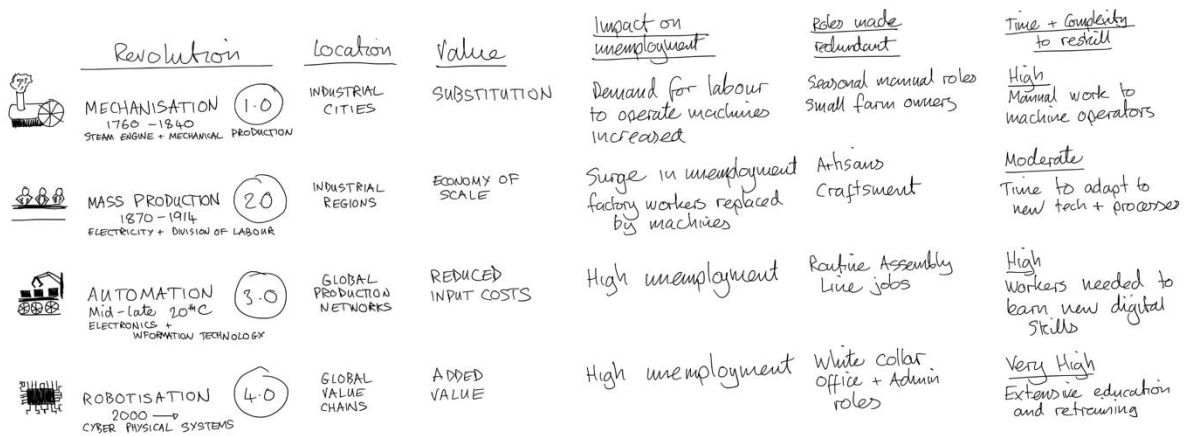 Revolution
Location
Value
Impact on
unemployment
Roles made
redundant
Time + Complexity
to reskill
MECHANISATION 1.0
1760 - 1840
STEAM ENGINE + MECHANICAL PRODUCTION
INDUSTRIAL
CITIES
SUBSTITUTION
Demand for labour
to operate machines
increased
Seasonal manual roles
Small farm owners
High
Manual work to
machine operators
MASS PRODUCTION 2.0
1870 - 1914
ELECTRICITY + DIVISION OF LABOUR
INDUSTRIAL
REGIONS
ECONOMY OF
SCALE
Surge in unemployment
factory workers replaced
by machines
Artisans
Craftsment
Moderate
Time to adapt to
new tech + processes
AUTOMATION 3.0
Mid-late 20th C
ELECTRONICS +
INFORMATION TECHNOLOGY
GLOBAL
PRODUCTION
NETWORKS
REDUCED
INPUT COSTS
High unemployment
Routine Assembly
Line jobs
High
Workers needed to
learn new digital
skills
ROBOTISATION 4.0
2000 →
CYBER PHYSICAL SYSTEMS
GLOBAL
VALUE
CHAINS
ADDED
VALUE
High unemployment
White collar
office + Admin
roles
Very High
Extensive education
and retraining